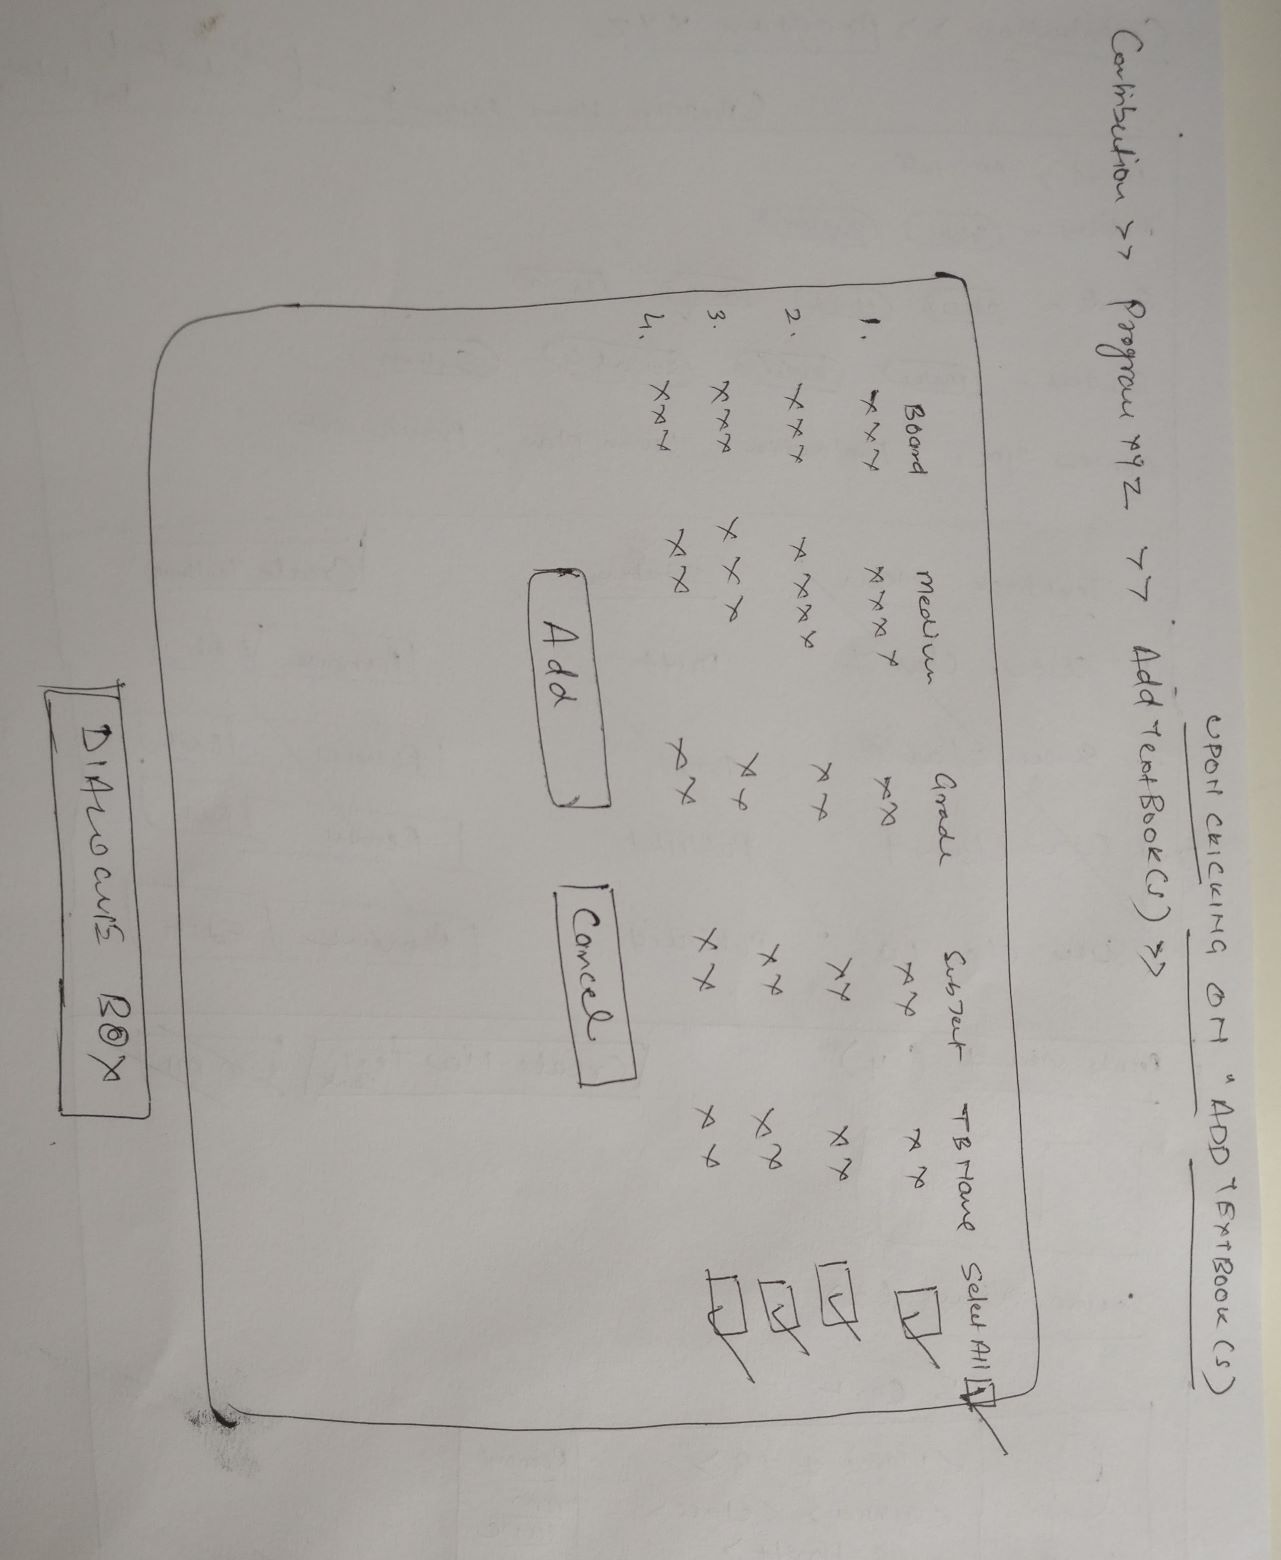 UPON CLICKING ON "ADD TEXTBOOK(S)
Contribution >> Program XYZ >> Add TextBook(s) >>
Board Medium Grade Subject TB Name Select All
1. xxx xxxx xx xx xx
2. xxx xxxx xx xx xx
3. xxx xxx xx xx xx
4. xxx xx xx xx xx
Add Cancel
DIALOGUE BOX